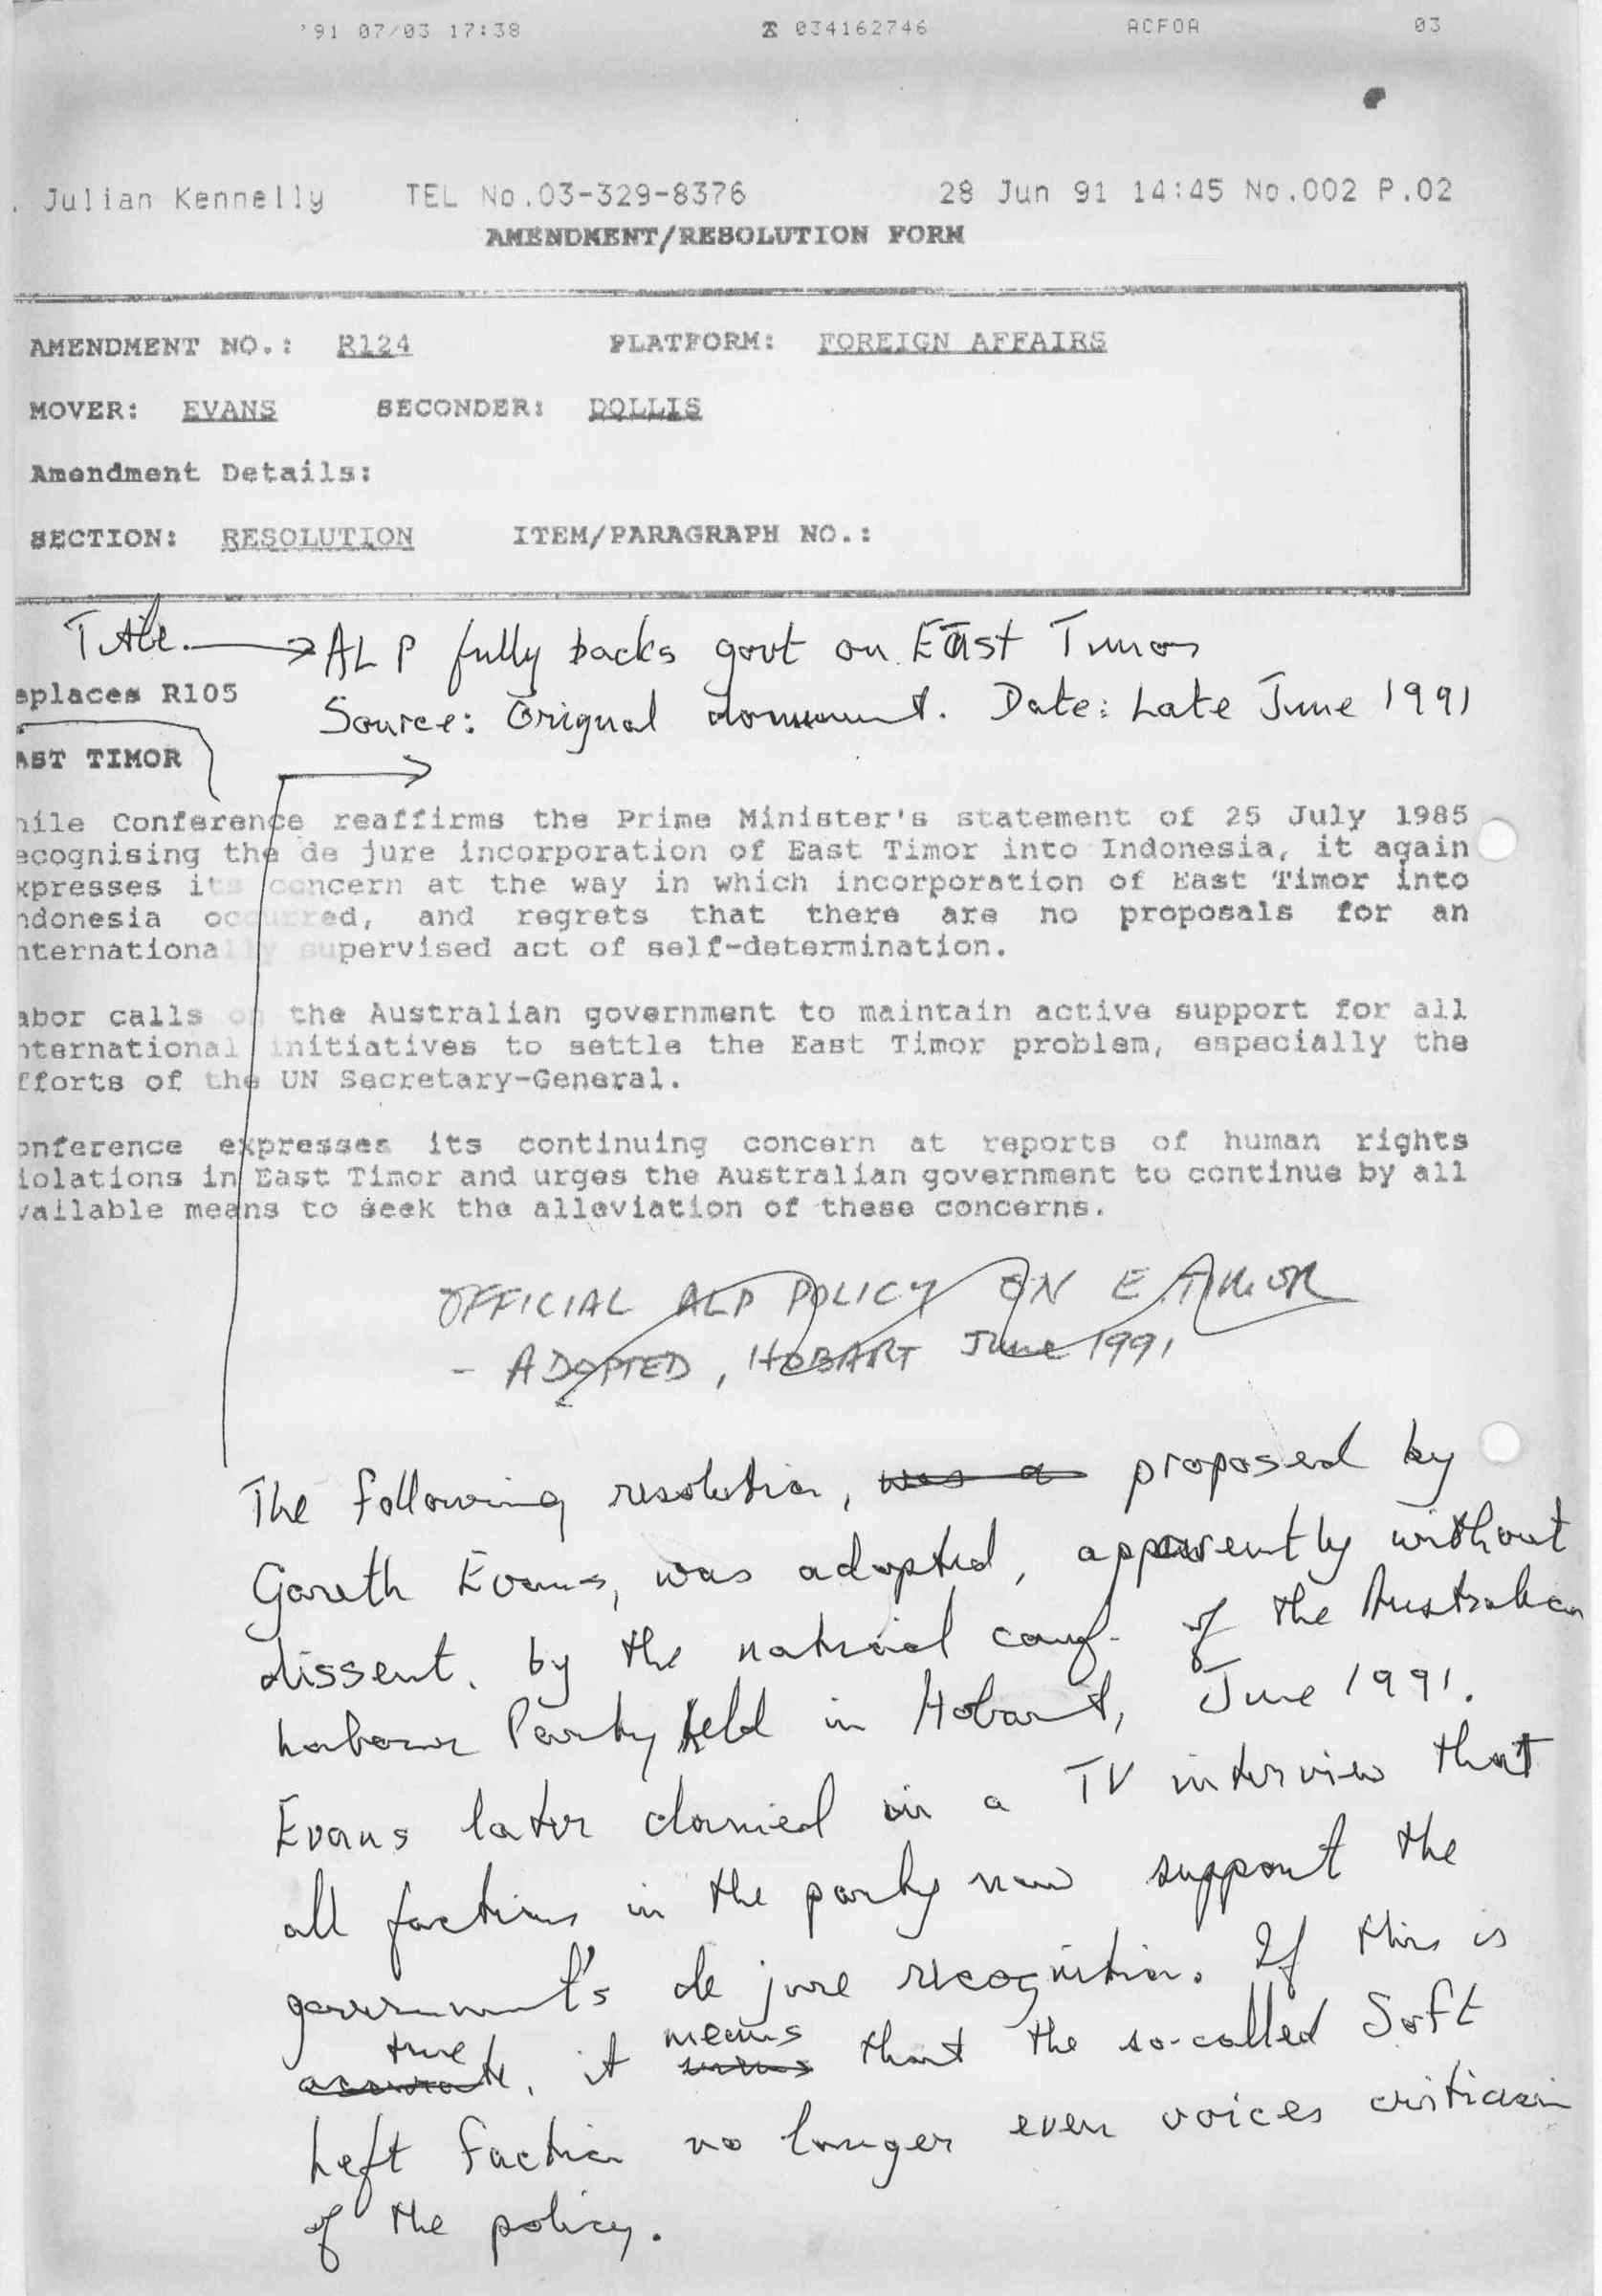 '91 07/03 17:38 ☎ 034162746 ACFOA 03
. Julian Kennelly TEL No.03-329-8376 28 Jun 91 14:45 No.002 P.02
AMENDMENT/RESOLUTION FORM
AMENDMENT NO.: R124 PLATFORM: FOREIGN AFFAIRS
MOVER: EVANS SECONDER: DOLLIS
Amendment Details:
SECTION: RESOLUTION ITEM/PARAGRAPH NO.:
Title. → ALP fully backs govt on East Timor
eplaces R105
Source: Original document. Date: Late June 1991
AST TIMOR
hile Conference reaffirms the Prime Minister's statement of 25 July 1985
ecognising the de jure incorporation of East Timor into Indonesia, it again
xpresses its concern at the way in which incorporation of East Timor into
ndonesia occurred, and regrets that there are no proposals for an
nternationally supervised act of self-determination.
abor calls on the Australian government to maintain active support for all
nternational initiatives to settle the East Timor problem, especially the
fforts of the UN Secretary-General.
onference expresses its continuing concern at reports of human rights
iolations in East Timor and urges the Australian government to continue by all
vailable means to seek the alleviation of these concerns.
OFFICIAL ALP POLICY ON E.TIMOR
- ADOPTED, HOBART June 1991
The following resolution, was a proposed by
Gareth Evans, was adopted, apparently without
dissent, by the national conf. of the Australian
Labour Party held in Hobart, June 1991.
Evans later claimed in a TV interview that
all factions in the party now support the
government's de jure recognition. If this is
true means
accurate, it that the so-called Soft
Left faction no longer even voices criticism
of the policy.